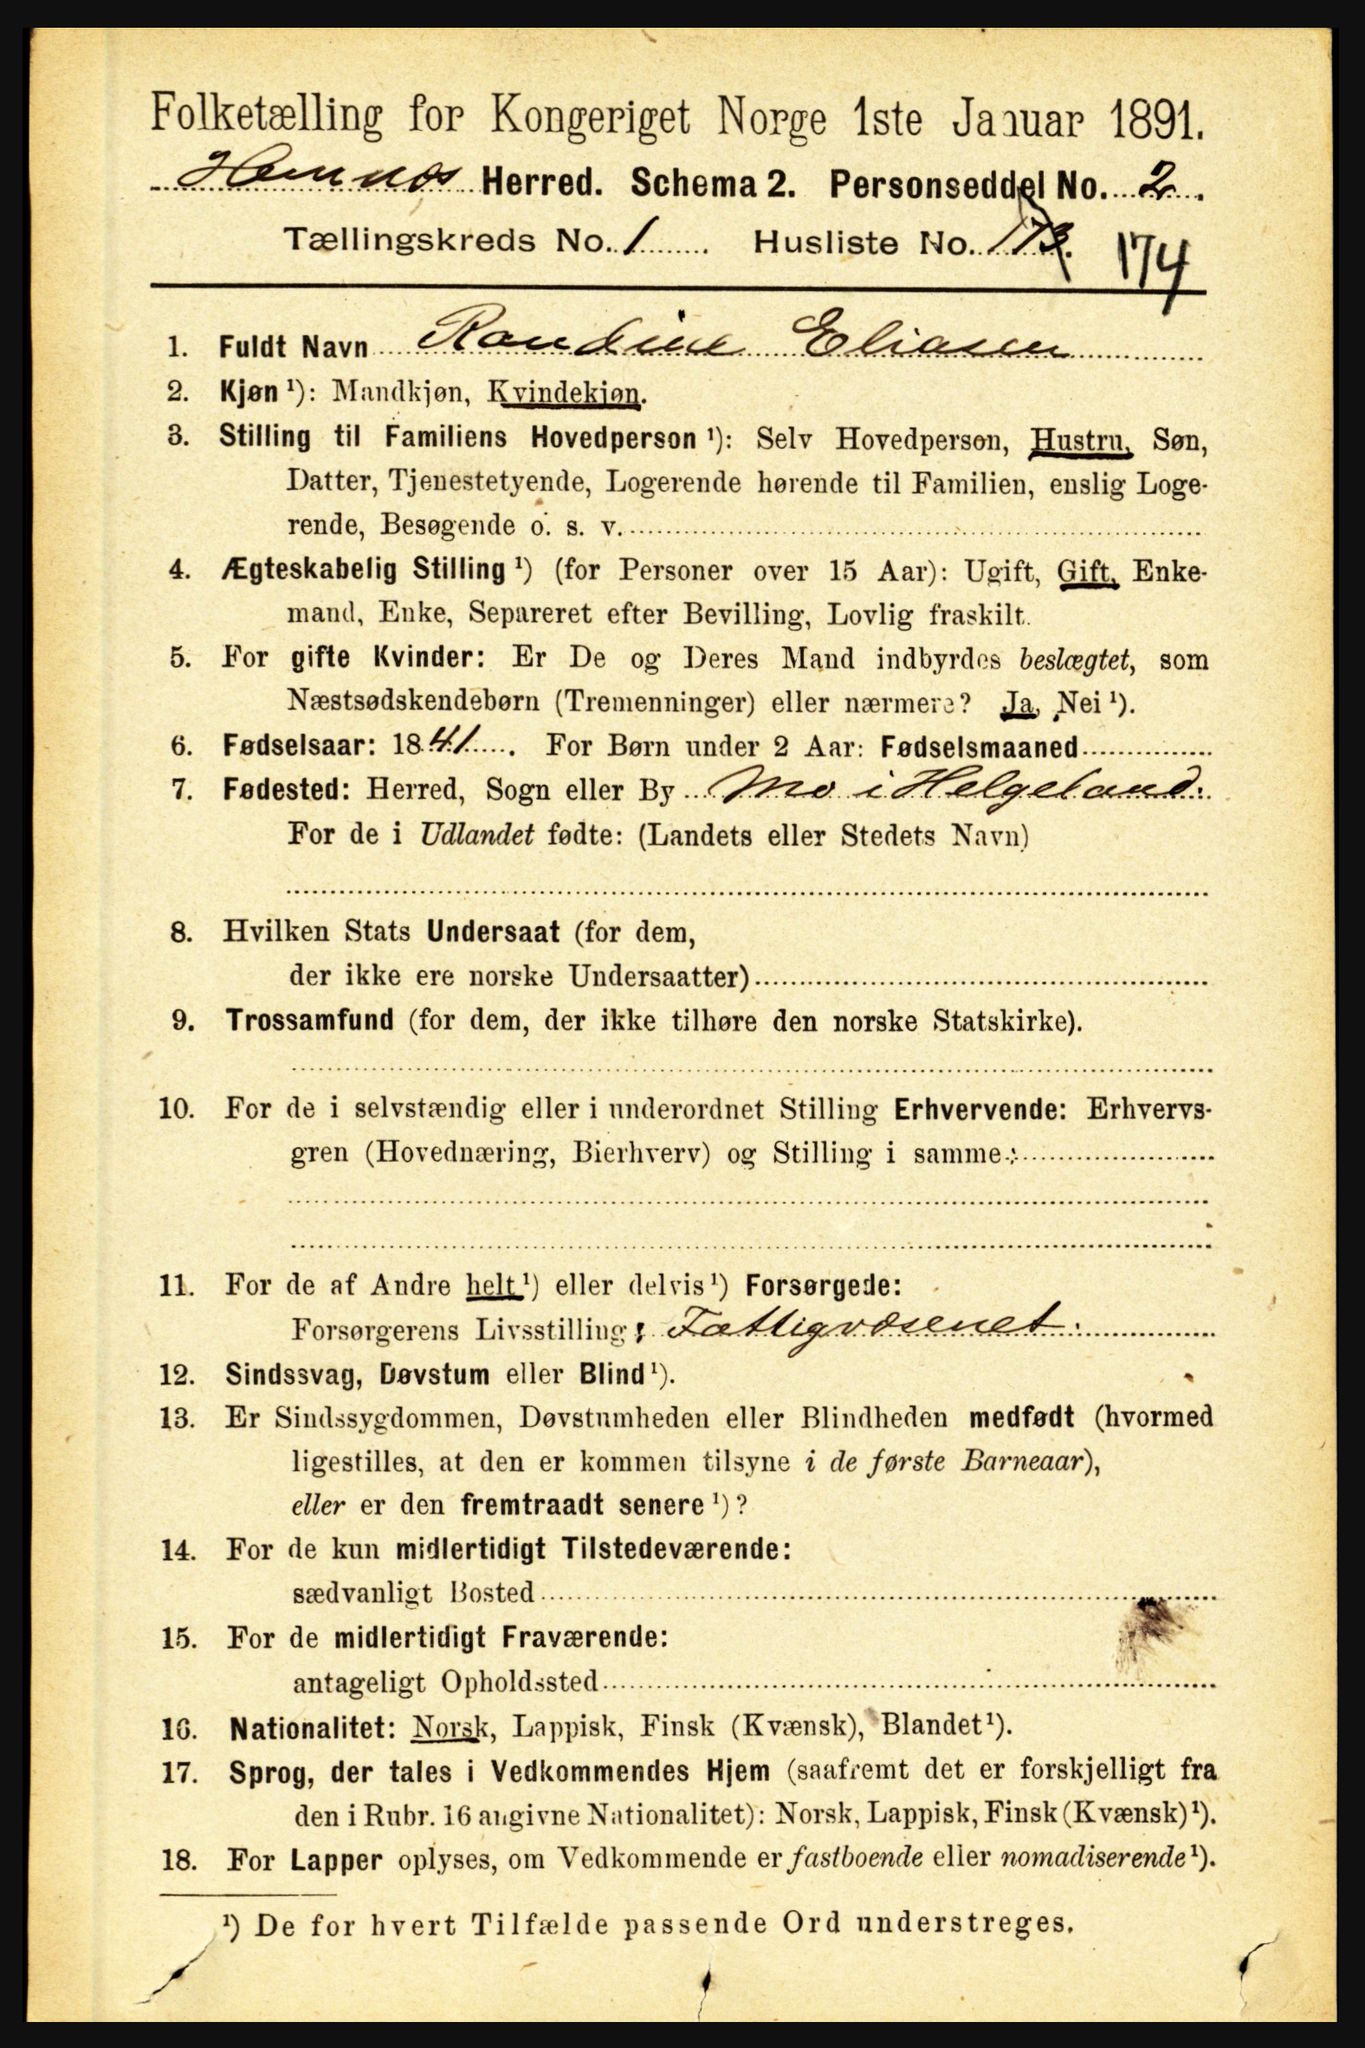 Folketælling for Kongeriget Norge 1ste Januar 1891.
Hemnes Herred. Schema 2. Personseddel No. 2.
Tællingskreds No. 1. Husliste No. 173. 174
1. Fuldt Navn Randine Eliasen
2. Kjøn ¹): Mandkjøn, Kvindekjøn.
3. Stilling til Familiens Hovedperson ¹): Selv Hovedperson, Hustru, Søn,
Datter, Tjenestetyende, Logerende hørende til Familien, enslig Loge-
rende, Besøgende o. s. v.
4. Ægteskabelig Stilling ¹) (for Personer over 15 Aar): Ugift, Gift, Enke-
mand, Enke, Separeret efter Bevilling, Lovlig fraskilt.
5. For gifte Kvinder: Er De og Deres Mand indbyrdes beslægtet, som
Næstsødskendebørn (Tremenninger) eller nærmere? Ja, Nei ¹).
6. Fødselsaar: 1841. For Børn under 2 Aar: Fødselsmaaned
7. Fødested: Herred, Sogn eller By Mo i Helgeland.
For de i Udlandet fødte: (Landets eller Stedets Navn)
8. Hvilken Stats Undersaat (for dem,
der ikke ere norske Undersaatter)
9. Trossamfund (for dem, der ikke tilhøre den norske Statskirke).
10. For de i selvstændig eller i underordnet Stilling Erhvervende: Erhvervs-
gren (Hovednæring, Bierhverv) og Stilling i samme:
11. For de af Andre helt ¹) eller delvis ¹) Forsørgede:
Forsørgerens Livsstilling: Fattigvæsenet.
12. Sindssvag, Døvstum eller Blind ¹).
13. Er Sindssygdommen, Døvstumheden eller Blindheden medfødt (hvormed
ligestilles, at den er kommen tilsyne i de første Barneaar),
eller er den fremtraadt senere ¹)?
14. For de kun midlertidigt Tilstedeværende:
sædvanligt Bosted
15. For de midlertidigt Fraværende:
antageligt Opholdssted
16. Nationalitet: Norsk, Lappisk, Finsk (Kvænsk), Blandet ¹).
17. Sprog, der tales i Vedkommendes Hjem (saafremt det er forskjelligt fra
den i Rubr. 16 angivne Nationalitet): Norsk, Lappisk, Finsk (Kvænsk) ¹).
18. For Lapper oplyses, om Vedkommende er fastboende eller nomadiserende ¹).
¹) De for hvert Tilfælde passende Ord understreges.